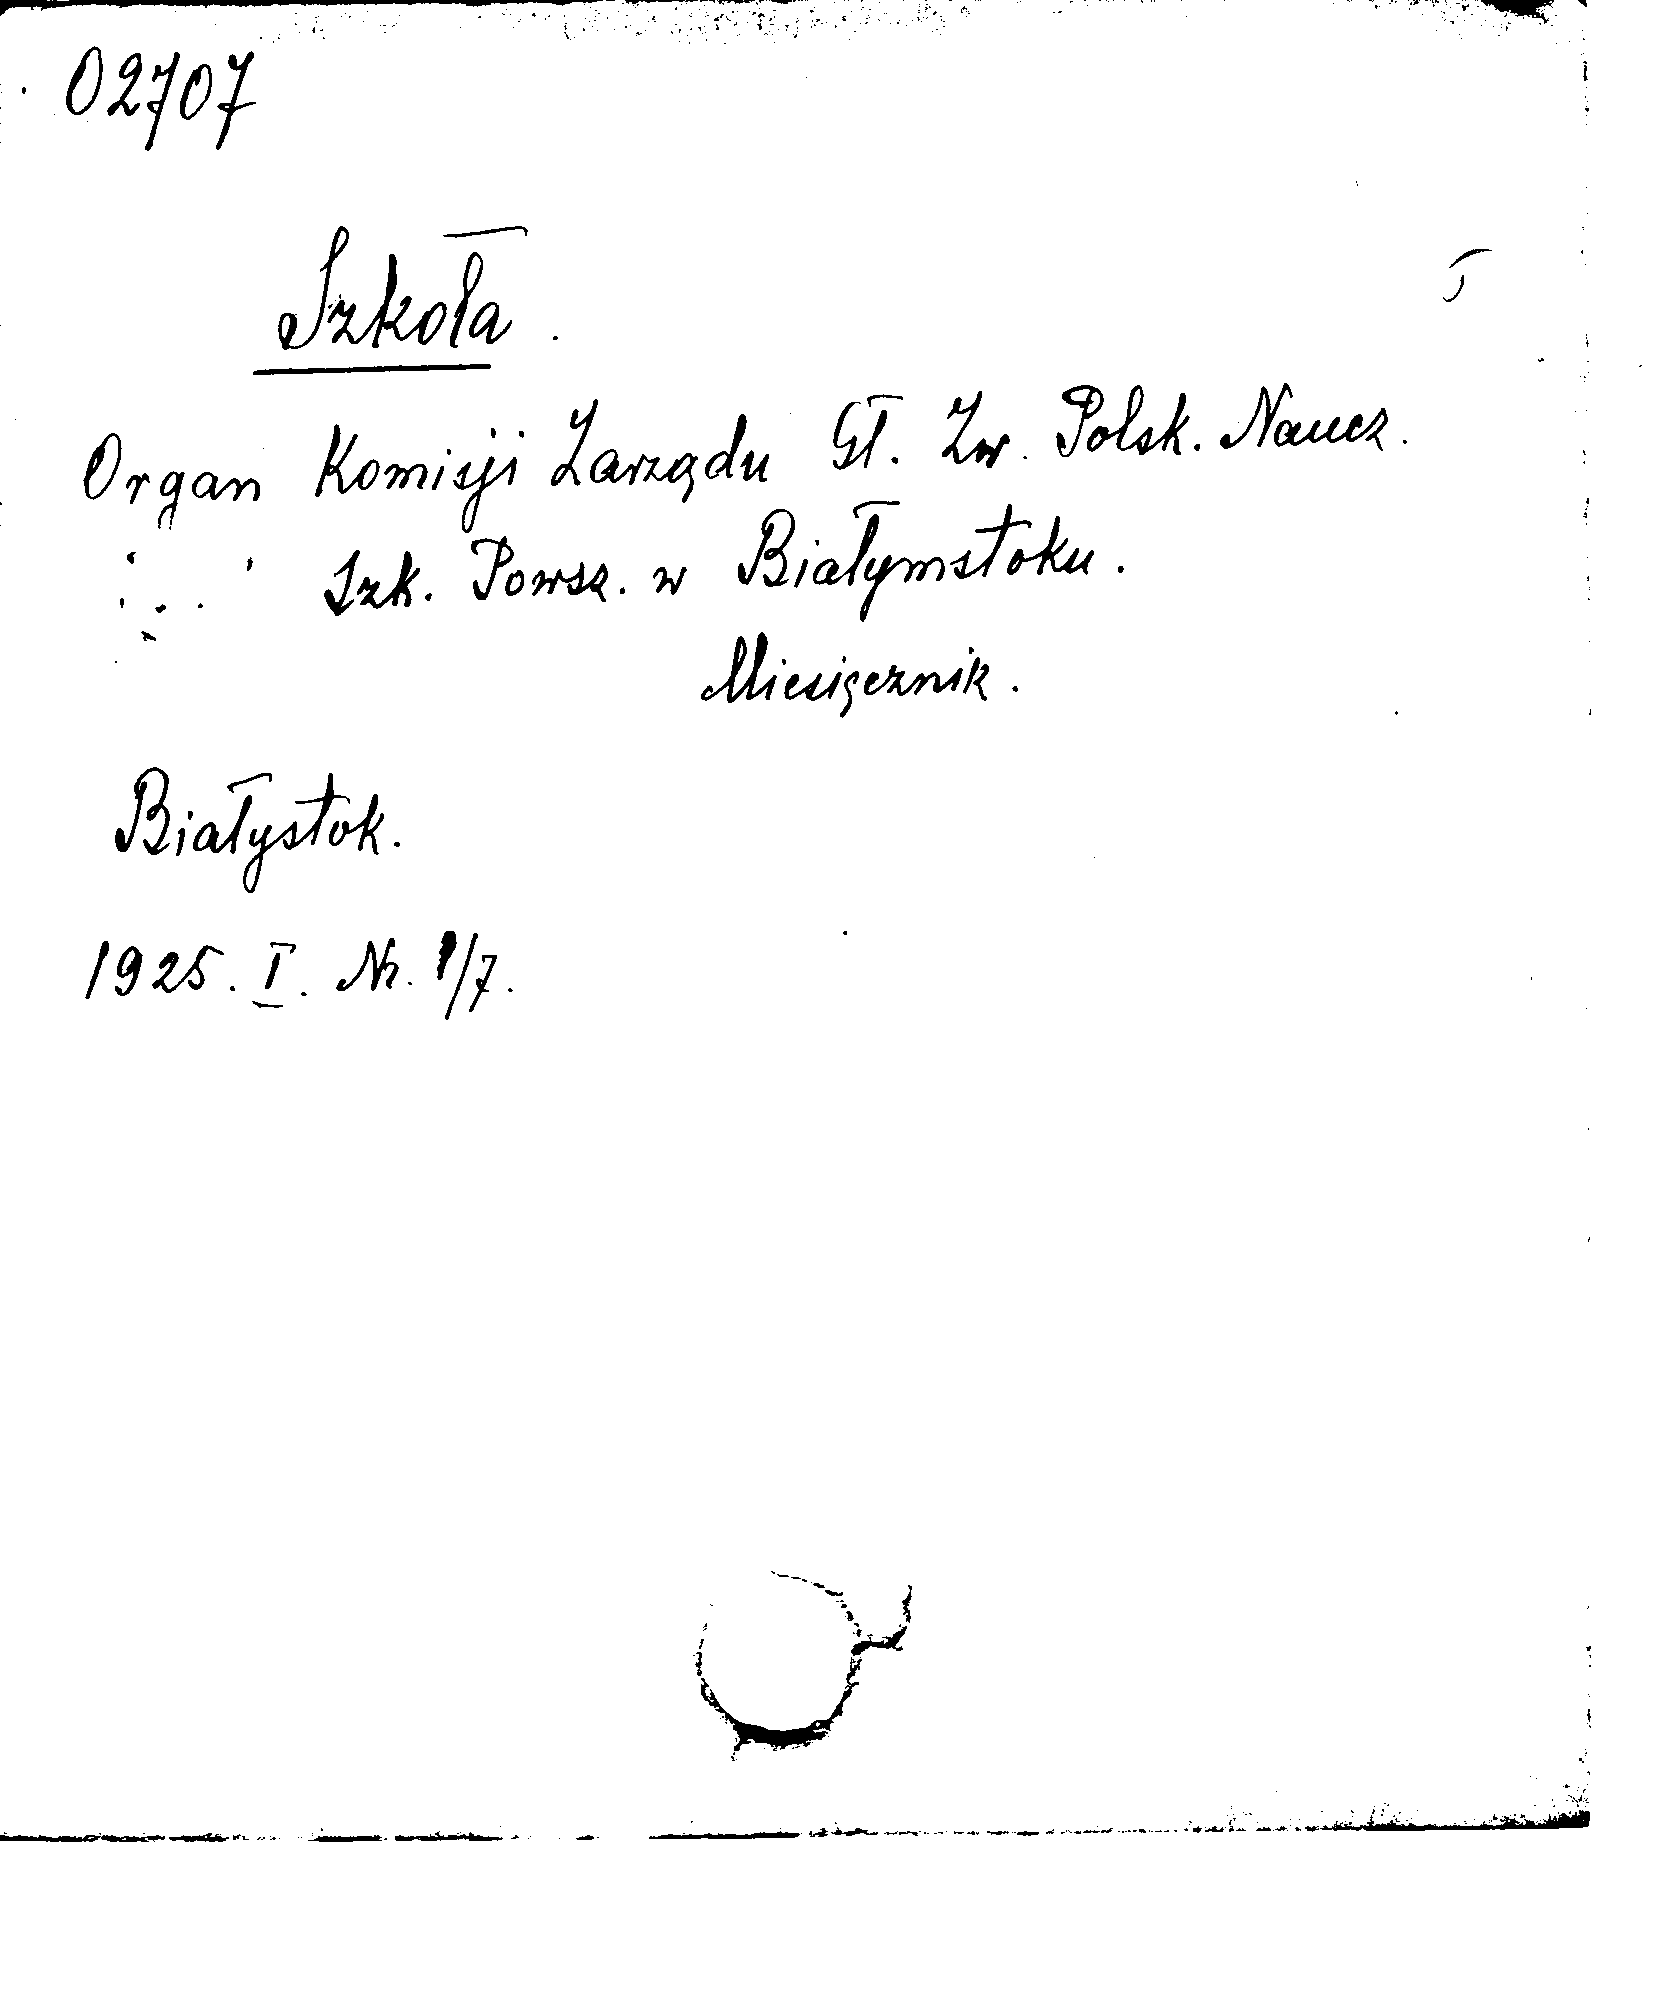 02707
Szkoła.
Organ Komisji Zarządu Gł. Zw. Polsk. Naucz.
Szk. Powsz. w Białymstoku.
Miesięcznik.
Białystok.
1925. I. Nr. 1/7.